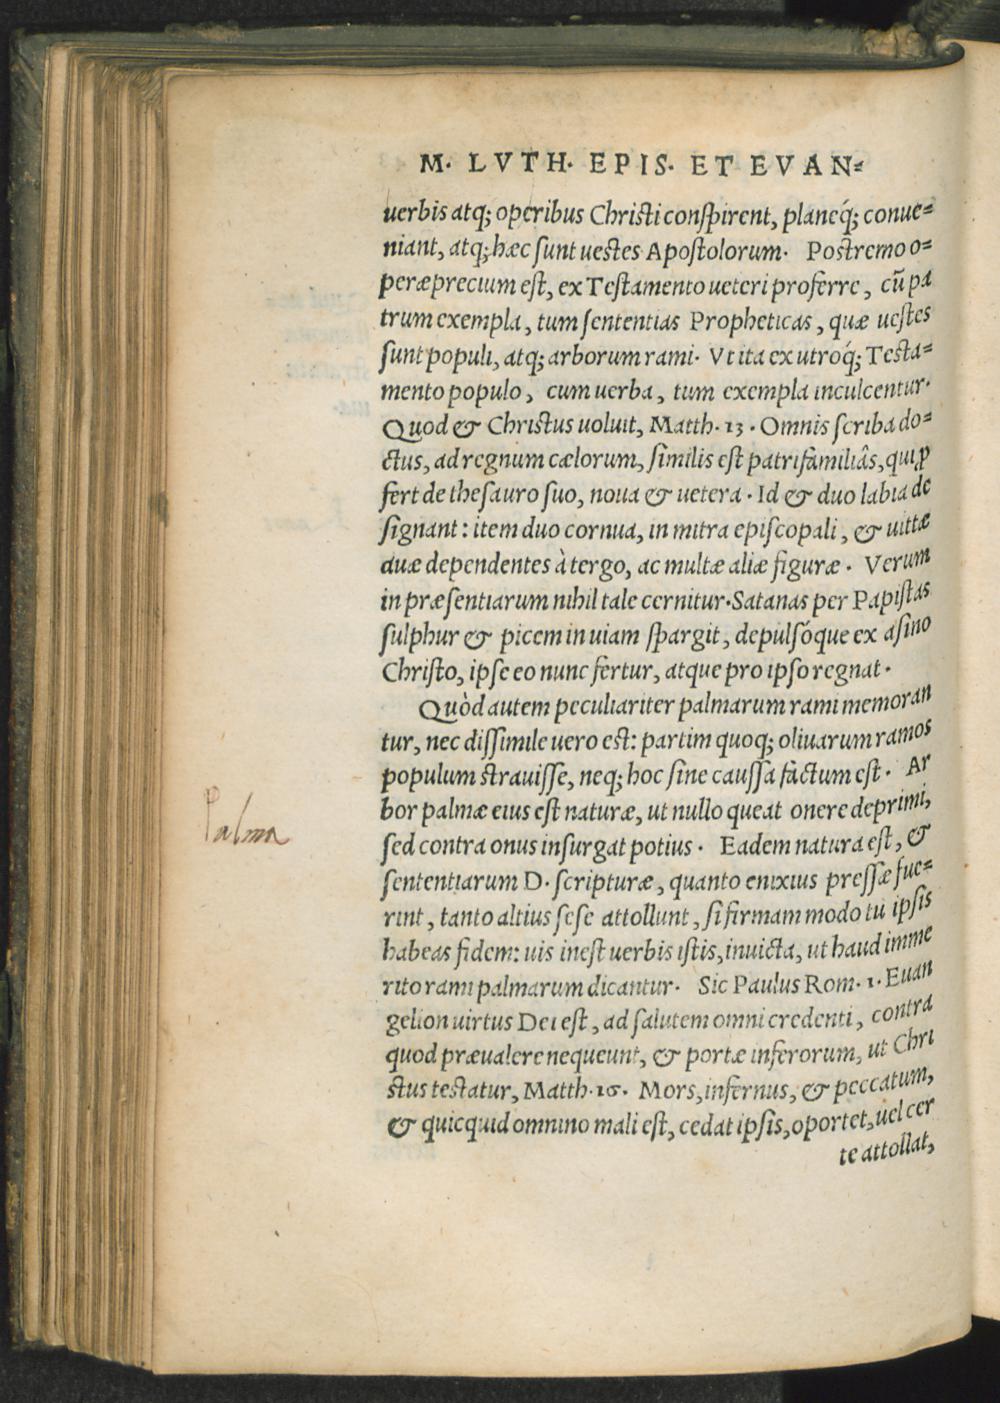 M. LVTH. EPIS. ET EVAN⸗
uerbis atq; operibus Christi conſpirent, planéq́; conue⸗
niant, atq; hæc ſunt ueſtes Apoſtolorum. Poſtremo o⸗
peræprecium eſt, ex Teſtamento ueteri proferre, cū pa
trum exempla, tum ſententias Propheticas, quæ ueſtes
ſunt populi, atq; arborum rami. Vt ita ex utroq́; Teſta⸗
mento populo, cum uerba, tum exempla inculcentur.
Quod & Chriſtus uoluit, Matth. 13. Omnis ſcriba do⸗
ctus, ad regnum cælorum, ſimilis eſt patrifamiliâs, qui ꝓ
fert de theſauro ſuo, noua & uetera. Id & duo labia de
ſignant: item duo cornua, in mitra epiſcopali, & uittæ
duæ dependentes à tergo, ac multæ aliæ figuræ. Verum
in præſentiarum nihil tale cernitur. Satanas per Papiſtas
ſulphur & picem in uiam ſpargit, depulſóque ex aſino
Chriſto, ipſe eo nunc fertur, atque pro ipſo regnat.
Quòd autem peculiariter palmarum rami memoran
tur, nec diſſimile uero eſt: partim quoq; oliuarum ramos
populum ſtrauiſſe, neq; hoc ſine cauſſa factum eſt. Ar
bor palmæ eius eſt naturæ, ut nullo queat onere deprimi,
Palma
ſed contra onus inſurgat potius. Eadem natura eſt, &
ſententiarum D. ſcripturæ, quanto enixius preſſæ fue⸗
rint, tanto altius ſeſe attollunt, ſi firmam modo tu ipſis
habeas fidem: uis ineſt uerbis iſtis, inuicta, ut haud imme
rito rami palmarum dicantur. Sic Paulus Rom. 1. Euan
gelion uirtus Dei eſt, ad ſalutem omni credenti, contra
quod præualere nequeunt, & portæ inferorum, ut Chri
ſtus teſtatur, Matth. 16. Mors, infernus, & peccatum,
& quicquid omnino mali eſt, cedat ipſis, oportet, uel cer
te attollat,